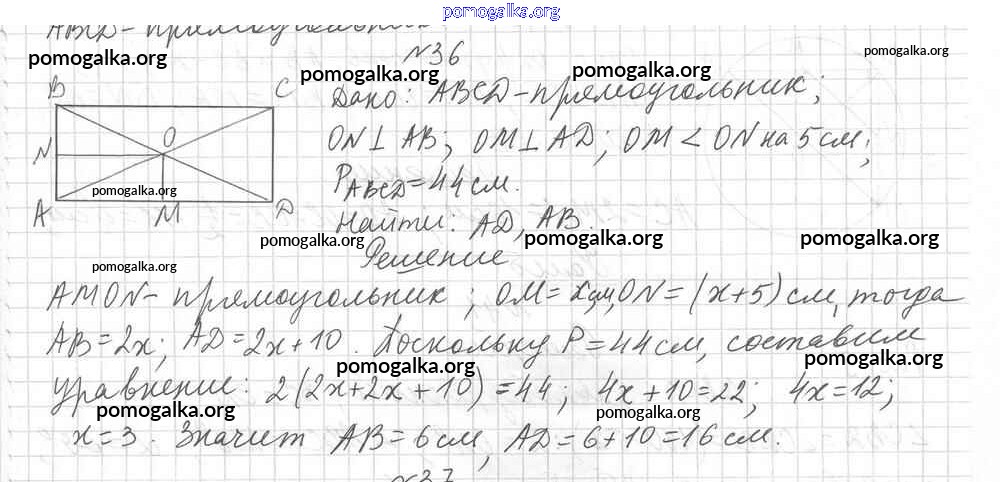 pomogalka.org
ABCD - прямоугольник
№36
pomogalka.org pomogalka.org pomogalka.org pomogalka.org
B C
N O
A M D
pomogalka.org
Дано: ABCD - прямоугольник;
ON ⊥ AB; OM ⊥ AD; OM < ON на 5 см;
P ABCD = 44 см.
Найти: AD, AB.
pomogalka.org pomogalka.org pomogalka.org
Решение
pomogalka.org
AMON - прямоугольник; OM = x см, ON = (x+5) см, тогда
AB = 2x; AD = 2x + 10. Поскольку P = 44 см, составим
pomogalka.org pomogalka.org
уравнение: 2(2x+2x+10) = 44; 4x + 10 = 22; 4x = 12;
pomogalka.org pomogalka.org
x = 3. Значит AB = 6 см, AD = 6 + 10 = 16 см.
№37